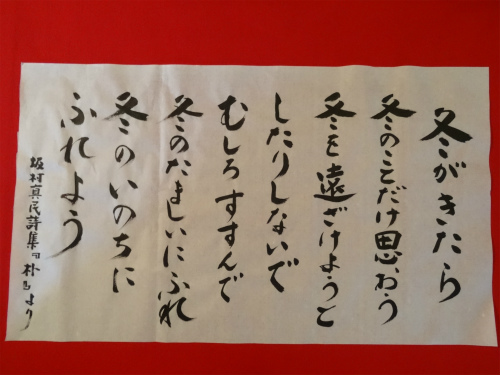 冬がきたら
冬のことだけ思おう
冬を遠ざけようと
したりしないで
むしろすすんで
冬のたましいにふれ
冬のいのちに
ふれよう
坂村真民詩集 より